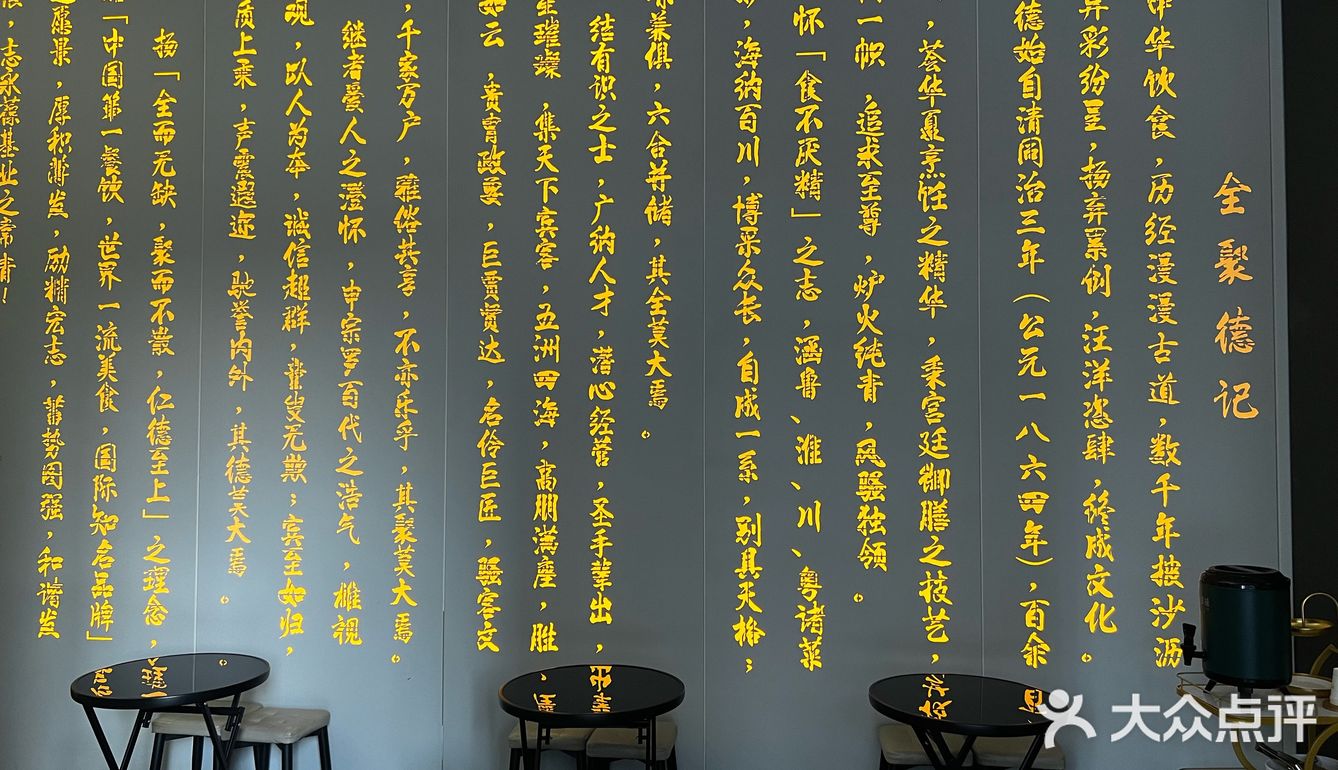 全聚德记
中华饮食，历经漫漫古道，数千年披沙沥
异彩纷呈，扬弃累创，汪洋恣肆，终成文化。
德始自清同治三年（公元一八六四年），百余
，荟华夏烹饪之精华，秉宫廷御膳之技艺，
一帜，追求至尊，炉火纯青，风骚独领。
怀「食不厌精」之志，涵鲁、淮、川、粤诸菜
，海纳百川，博采众长，自成一系，别具天格；
味兼俱，六合并储，其全莫大焉。
结有识之士，广纳人才，潜心经营，圣手辈出，
璀璨，集天下宾客，五洲四海，高朋满座，胜
如云，贵胄政要，巨贾贤达，名伶巨匠，骚客文
，千家万户，雅俗共享，不亦乐乎，其聚莫大焉。
继者爱人之澄怀，申宗罗百代之浩气，雄视
观，以人为本，诚信超群，童叟无欺；宾至如归，
质上乘，声震遐迩，驰誉内外，其德莫大焉。
扬「全而无缺，聚而不散，仁德至上」之理念，
「中国第一餐饮，世界一流美食，国际知名品牌」
愿景，厚积渐发，励精宏志，蓄势图强，和谐发
，志永葆基业之常青！
大众点评